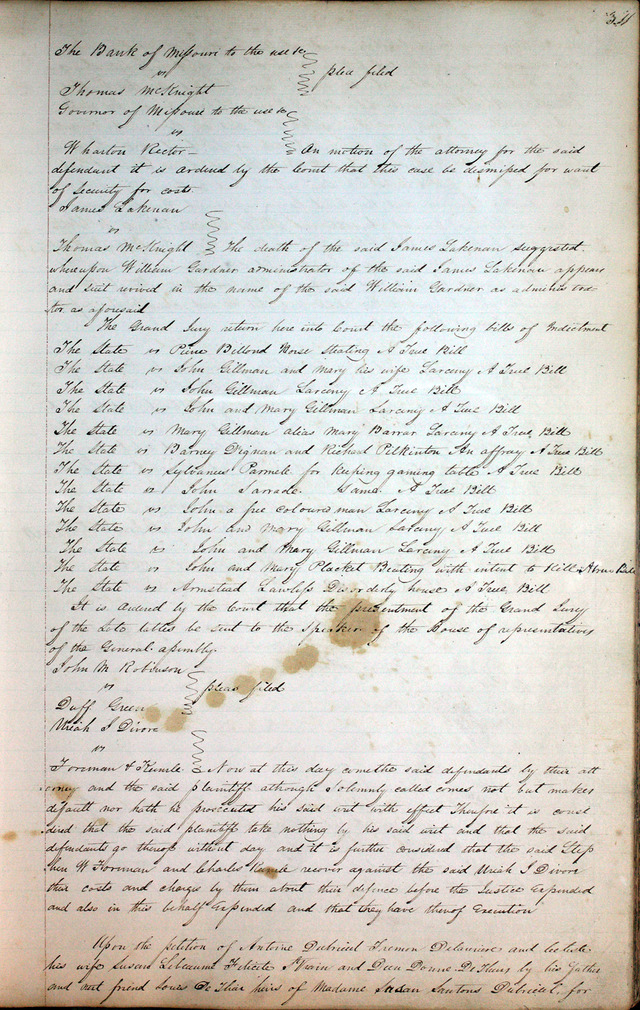 The Bank of Missouri to the use &c
vs
plea filed
Thomas McKnight
Governor of Missouri to the use &c
vs
Wharton Rector – On motion of the attorney for the said
defendant it is ordered by the Court that this case be dismissed for want
of security for costs
James Lakenan
vs
Thomas McKnight The death of the said James Lakenan suggested
whereupon William Gardner administrator of the said James Lakenan appears
and suit revived in the name of the said William Gardner as administra
tor as aforesaid
The Grand Jury return here into Court the following bills of Indictment
The State vs Billond Horse Stealing A True Bill
The State vs John Gillman and Mary his wife Larceny A True Bill
The State vs John Gillman Larceny A True Bill
The State vs John and Mary Gillman Larceny A True Bill
The State vs Mary Gillman alias Mary Barrar Larceny A True Bill
The State vs Barney Dignan and Pilkinton An affray A True Bill
The State vs Sylvanus Parmele for Keeping gaming table A True Bill
The State vs John Same A True Bill
The State vs John a free coloured man Larceny A True Bill
The State vs John and Mary Gillman Larceny A True Bill
The State vs John and Mary Gillman Larceny A True Bill
The State vs John and Mary Placket Beating with intent to Kill A true Bill
The State vs Armstead Lawless Disorderly house A True Bill
It is ordered by the Court that the presentment of the Grand Jury
of the Loto tables be sent to the Speaker of the House of representatives
of the General assembly
John M Robinson
vs
pleas filed
Duff Green
Uriah I Divore
vs
Foreman & Kumle Now at this day come the said defendants by their att
orney and the said plaintiff although Solemnly called comes not but makes
default nor hath he prosecuted his said writ with effect Therefore it is consi
dered that the said plaintiff take nothing by his said writ and that the said
defendants go thereof without day and it is further considered that the said Step
hen W Foreman and Charles Kumle recover against the said Uriah I Divore
their costs and charges by them about their defence before the Justice Expended
and also in this behalf Expended and that they have thereof Execution
Upon the petition of Antoine Dubrieul Tremon Delauriere and
his wife Susan Lebeaume Felicite StVrain and Dieu Donne De Thier by his father
and next friend Louis De Thier heirs of Madame Susan Santous Dubrieul, for